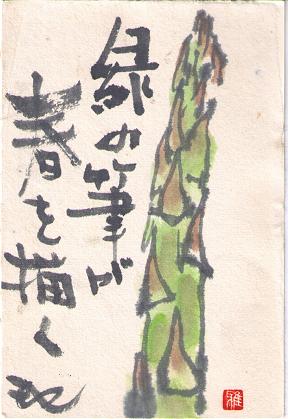 緑の筆が
春を描く
雅